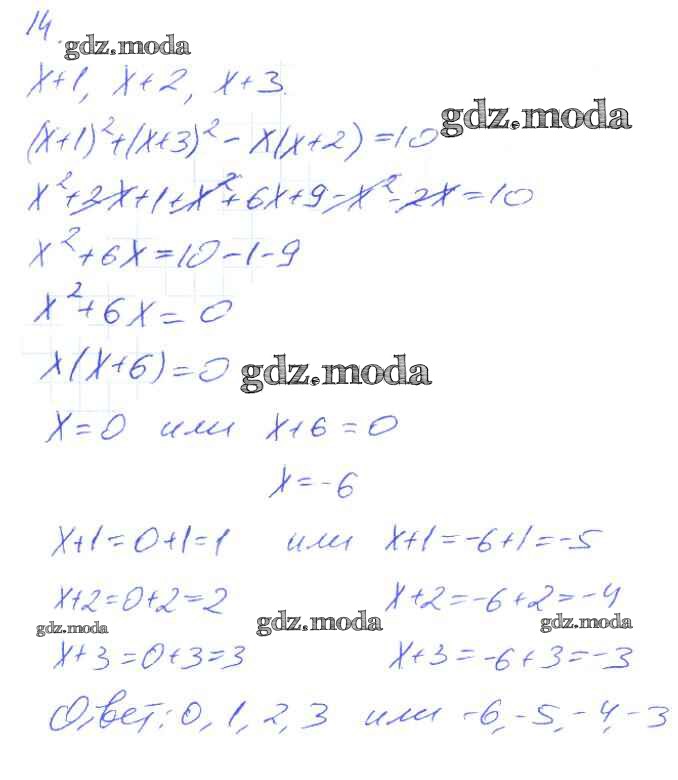 14.
gdz.moda
x+1, x+2, x+3.
gdz.moda
(x+1)²+(x+3)² - x(x+2)=10
x²+2x+1+x²+6x+9-x²-2x=10
x²+6x=10-1-9
x²+6x=0
x(x+6)=0
gdz.moda
x=0 или x+6=0
x=-6
x+1=0+1=1 или x+1=-6+1=-5
x+2=0+2=2 x+2=-6+2=-4
gdz.moda gdz.moda gdz.moda
x+3=0+3=3 x+3=-6+3=-3
Ответ: 0, 1, 2, 3 или -6, -5, -4, -3